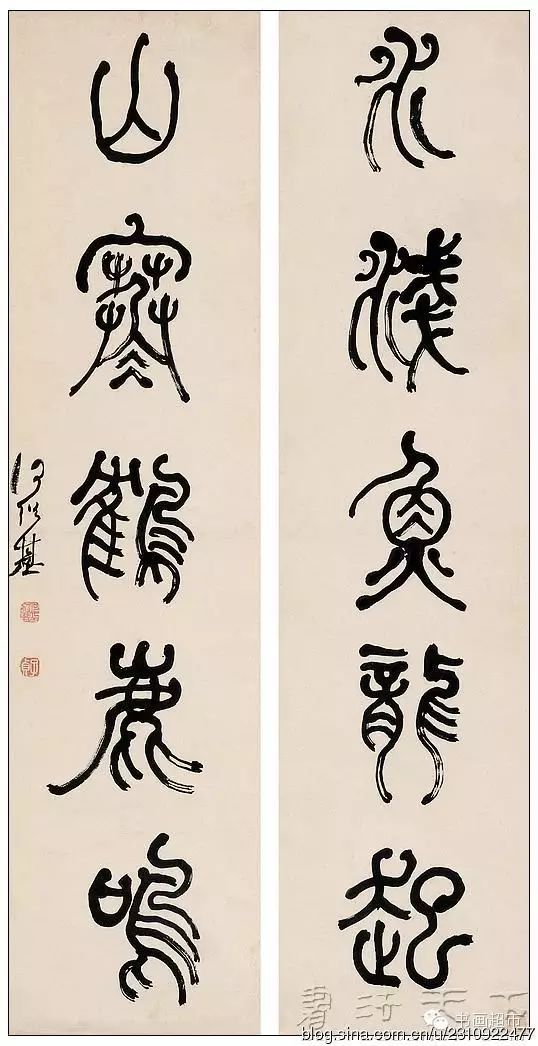 水淺魚龍起
山寒鶴鹿鳴
何紹基
子貞
书画超市
blog.sina.com.cn/u/2310922477